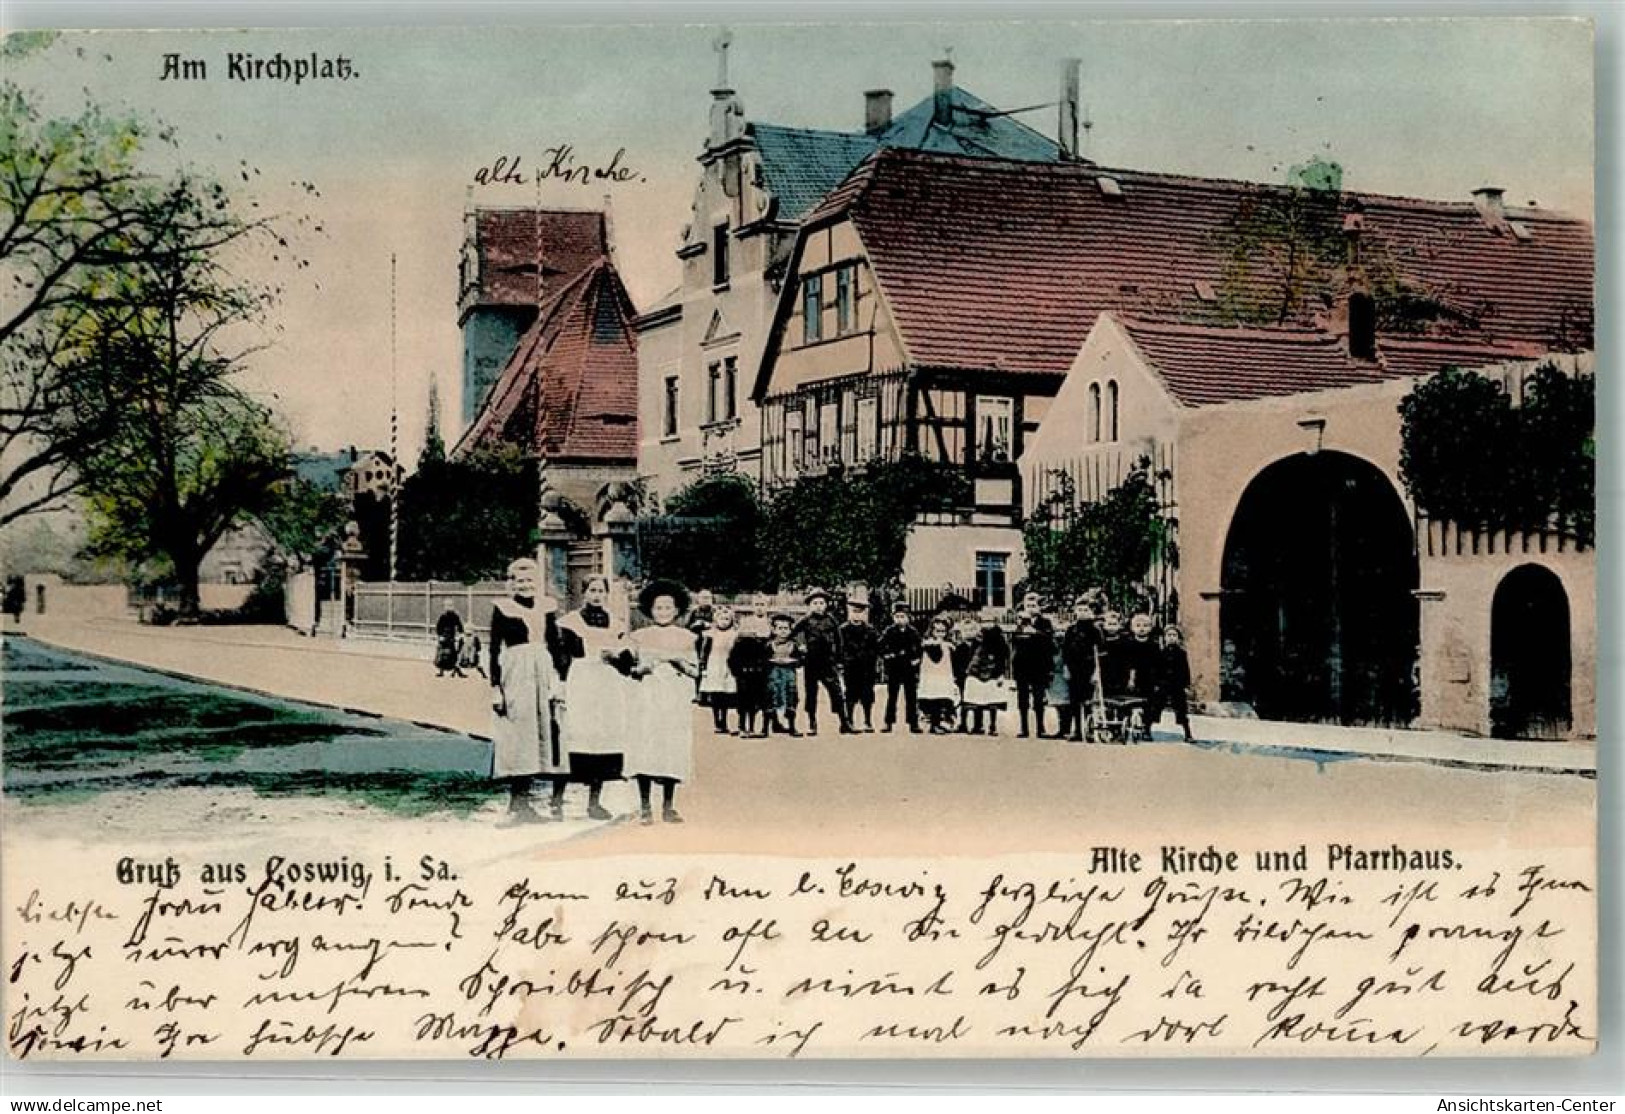 Am Kirchplatz.
alte Kirche.
Gruß aus Coswig i. Sa.
Alte Kirche und Pfarrhaus.
Liebste Frau Häbler! Sende Ihnen aus dem l. Coswig herzliche Grüße. Wie ist es Ihnen
jetzt immer ergangen? Habe schon oft an Sie gedacht. Ihr Bildchen prangt
jetzt über unserem Schreibtisch u. nimmt es sich da recht gut aus,
sowie Ihre hübsche Mappe. Sobald ich mal nach dort komme, werde
www.delcampe.net
Ansichtskarten-Center